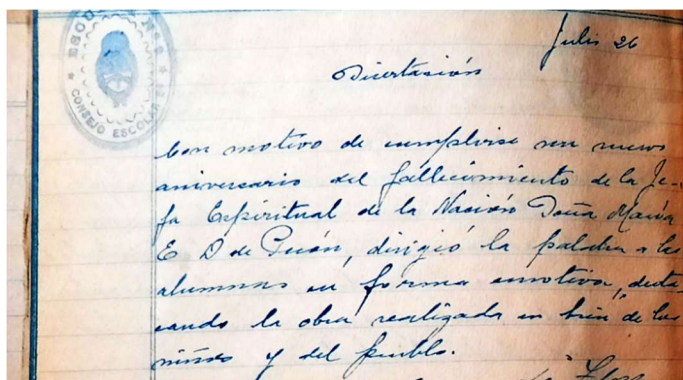 ESCUELA Nº
CONSEJO ESCOLAR
Julio 26
Disertación
Con motivo de cumplirse un nuevo
aniversario del fallecimiento de la Je-
fa Espiritual de la Nación Doña María
E D de Perón, dirigió la palabra a las
alumnas en forma emotiva, desta-
cando la obra realizada en bien de los
niños y del pueblo.